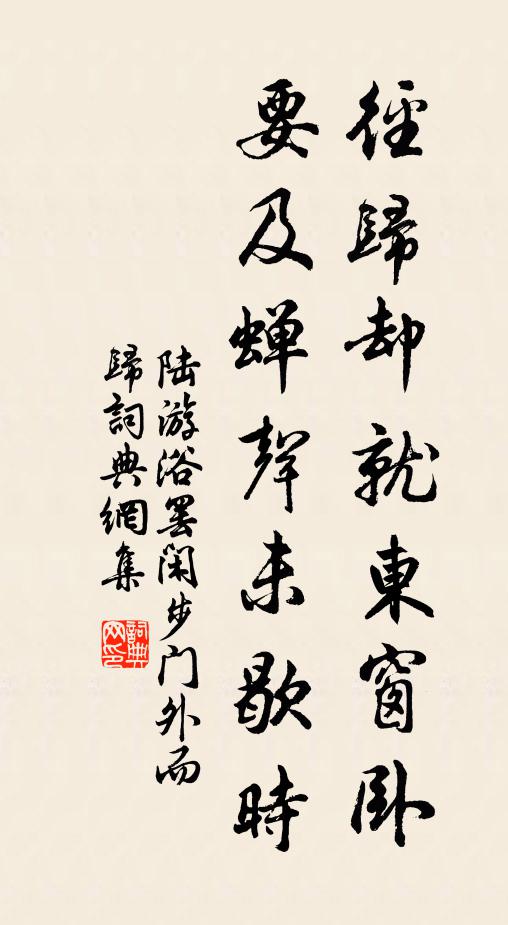 徑歸却就東窗卧
要及蝉聲未歇時
陆游浴罢闲步门外而
歸詞典網集
詞典
网印